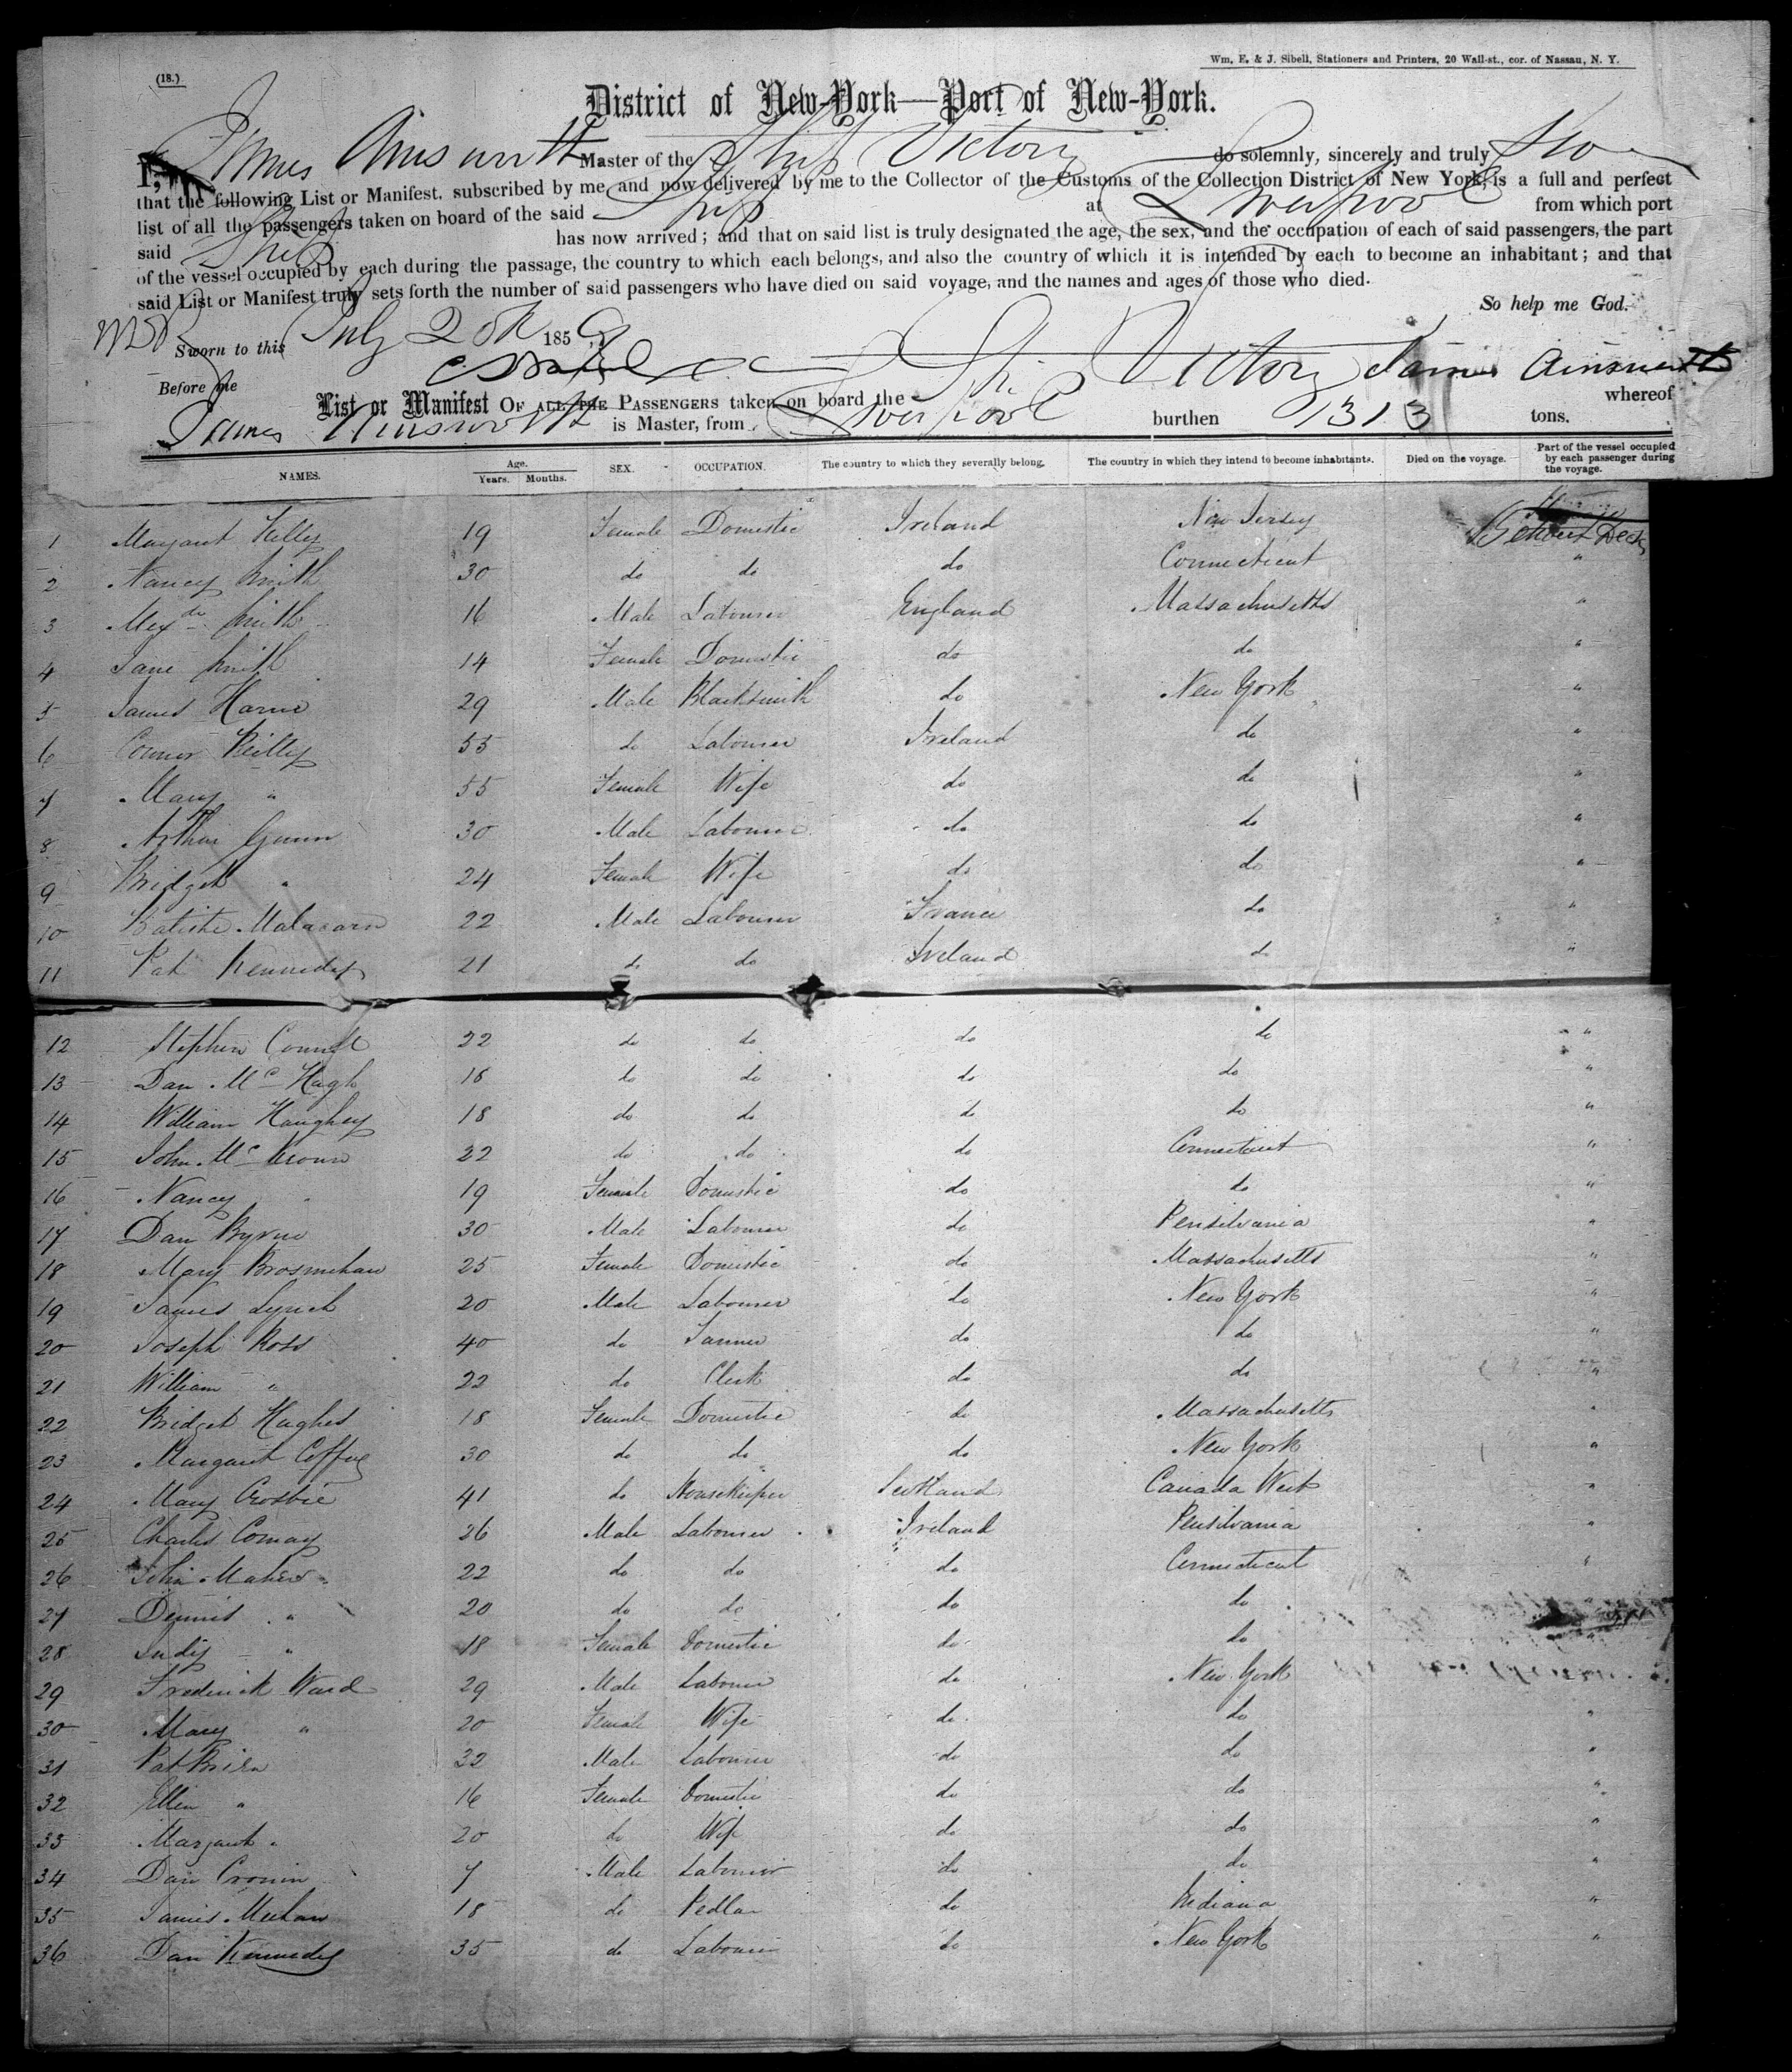 (18.)
Wm. E. & J. Sibell, Stationers and Printers, 20 Wall-st., cor. of Nassau, N. Y.
District of New-York—Port of New-York.
I, James Ainsworth Master of the Ship Victory do solemnly, sincerely and truly
that the following List or Manifest, subscribed by me and now delivered by me to the Collector of the Customs of the Collection District of New York, is a full and perfect
list of all the passengers taken on board of the said Ship at Liverpool from which port
said Ship has now arrived; and that on said list is truly designated the age, the sex, and the occupation of each of said passengers, the part
of the vessel occupied by each during the passage, the country to which each belongs, and also the country of which it is intended by each to become an inhabitant; and that
said List or Manifest truly sets forth the number of said passengers who have died on said voyage, and the names and ages of those who died.
So help me God.
Sworn to this July 20th 1859
Before me James Ainsworth
List or Manifest OF ALL THE PASSENGERS taken on board the Ship Victory whereof
James Ainsworth is Master, from Liverpool burthen 1313 tons.
NAMES. Age. Years. Months. SEX. OCCUPATION. The country to which they severally belong. The country in which they intend to become inhabitants. Died on the voyage. Part of the vessel occupied by each passenger during the voyage.
1 Margaret Kelly 19 Female Domestic Ireland New Jersey Between Deck
2 Nancy Smith 30 do do do Connecticut "
3 Alexdr Smith 16 Male Labourer England Massachusetts "
4 Jane Smith 14 Female Domestic do do "
5 James Harne 29 Male Blacksmith do New York "
6 Connor Reilly 55 do Labourer Ireland do "
7 Mary " 55 Female Wife do do "
8 Arthur Gunn 30 Male Labourer do do "
9 Bridget " 24 Female Wife do do "
10 Batiste Malacarn 22 Male Labourer France do "
11 Pat Kennedy 21 do do Ireland do "
12 Stephen Connell 22 do do do do "
13 Dan McHugh 18 do do do do "
14 William Haughey 18 do do do do "
15 John McKeown 22 do do do Connecticut "
16 Nancy " 19 Female Domestic do do "
17 Dan Byrne 30 Male Labourer do Pensilvania "
18 Mary Brosnehan 25 Female Domestic do Massachusetts "
19 James Lynch 20 Male Labourer do New York "
20 Joseph Ross 40 do Farmer do do "
21 William " 22 do Clerk do do "
22 Bridget Hughes 18 Female Domestic do Massachusetts "
23 Margaret Coffey 30 do do do New York "
24 Mary Crosbie 41 do Housekeeper Scotland Canada West "
25 Charles Conway 26 Male Labourer Ireland Pensilvania "
26 John Maher 22 do do do Connecticut "
27 Dennis " 20 do do do do
28 Judy " 18 Female Domestic do do
29 Frederick Ward 29 Male Labourer do New York
30 Mary " 20 Female Wife do do "
31 Pat Brien 22 Male Labourer do do "
32 Ellen " 16 Female Domestic do do "
33 Margaret " 20 do Wife do do "
34 Dan Cronin 7 Male Labourer do do "
35 James Meehan 18 do Pedlar do Indiana "
36 Dan Kennedy 35 do Labourer do New York "